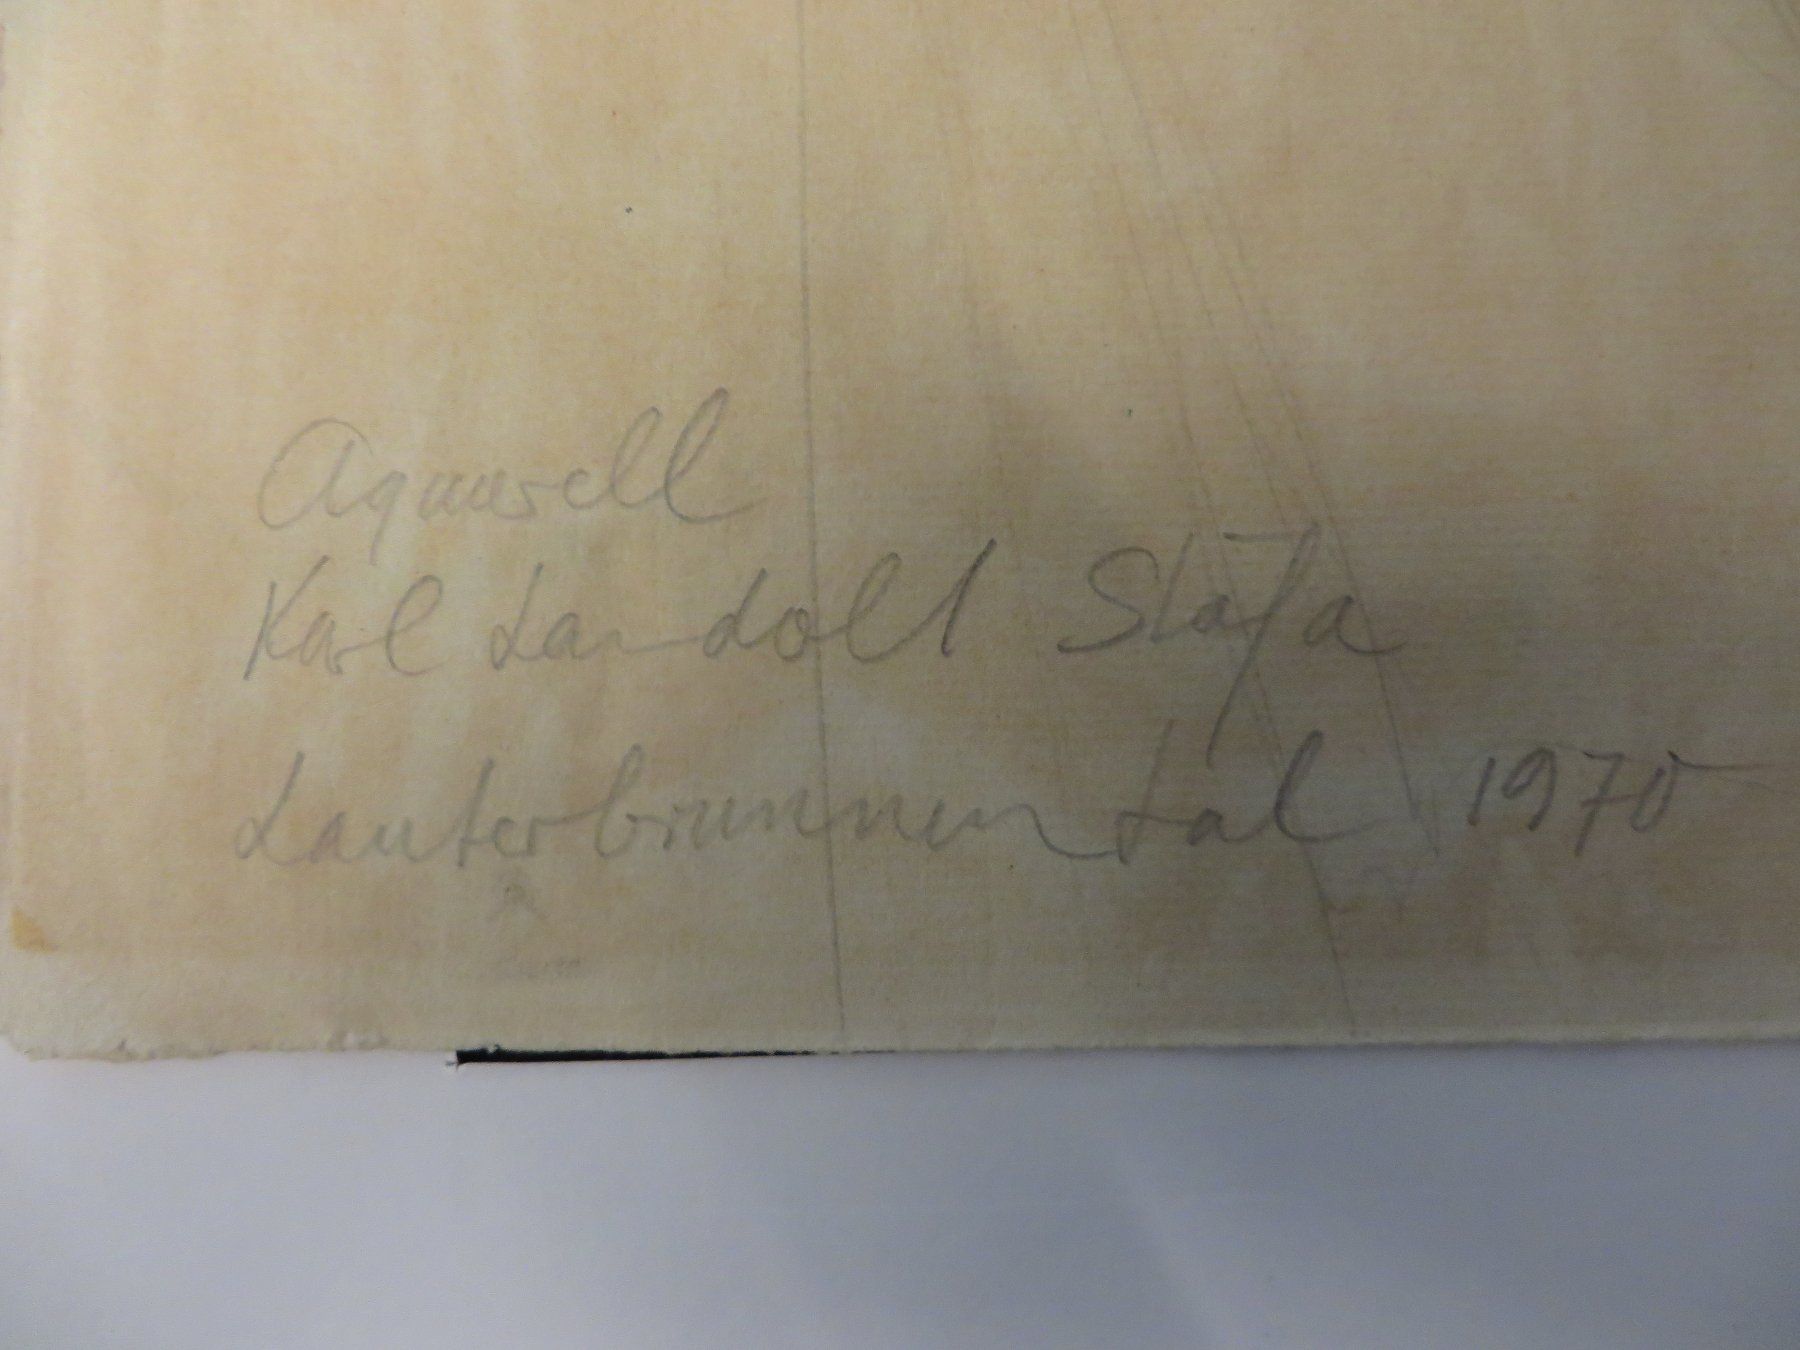 Aquarell
Karl Landolt Stäfa
Lauterbrunnental 1970